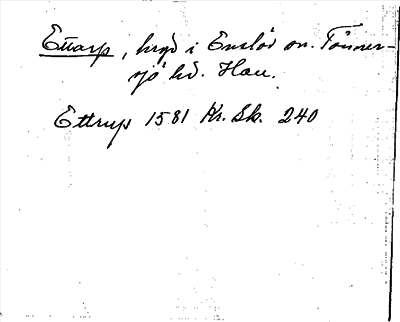 Ettarp, by i Enslöv sn. Tönner-
sjö hd. Hall.
Ettrup 1581 Kr. Sk. 240